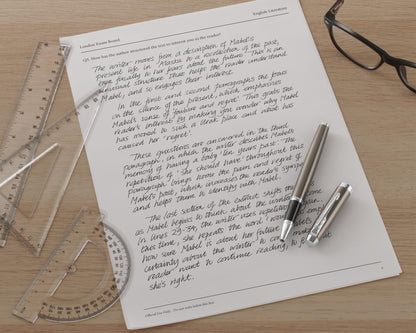 London Exams Board
English Literature
Q3: How has the author structured the text to interest you as the reader?
The writer moves from a description of Mabel's
present life in 'Alaska' to a recollection of the past,
then finally to her fears about the future. This is an
unusual structure that helps the reader understand
Mabel, and so engages their interest.
In the first and second paragraphs the focus
on the silence of the present, which emphasises
Mabel's sense of failure and regret. This grabs the
reader's interest by making you wonder why Mabel
has moved to such a bleak place and what has
caused her 'regret'.
These questions are answered in the third
paragraph, in which the writer describes Mabel's
memory of having a baby 'ten years past'. The
repetition of 'she should have' throughout this
paragraph brings home the pain and regret of
Mabel's past, which increases the reader's sympathy
and helps them to identify with Mabel.
The last section of the extract shifts
as Mabel begins to think about the
In lines 29-34, the writer uses
this time, she repeats the word
how sure Mabel is about her future
certainty about the
reader want to continue reading, to
she's right.